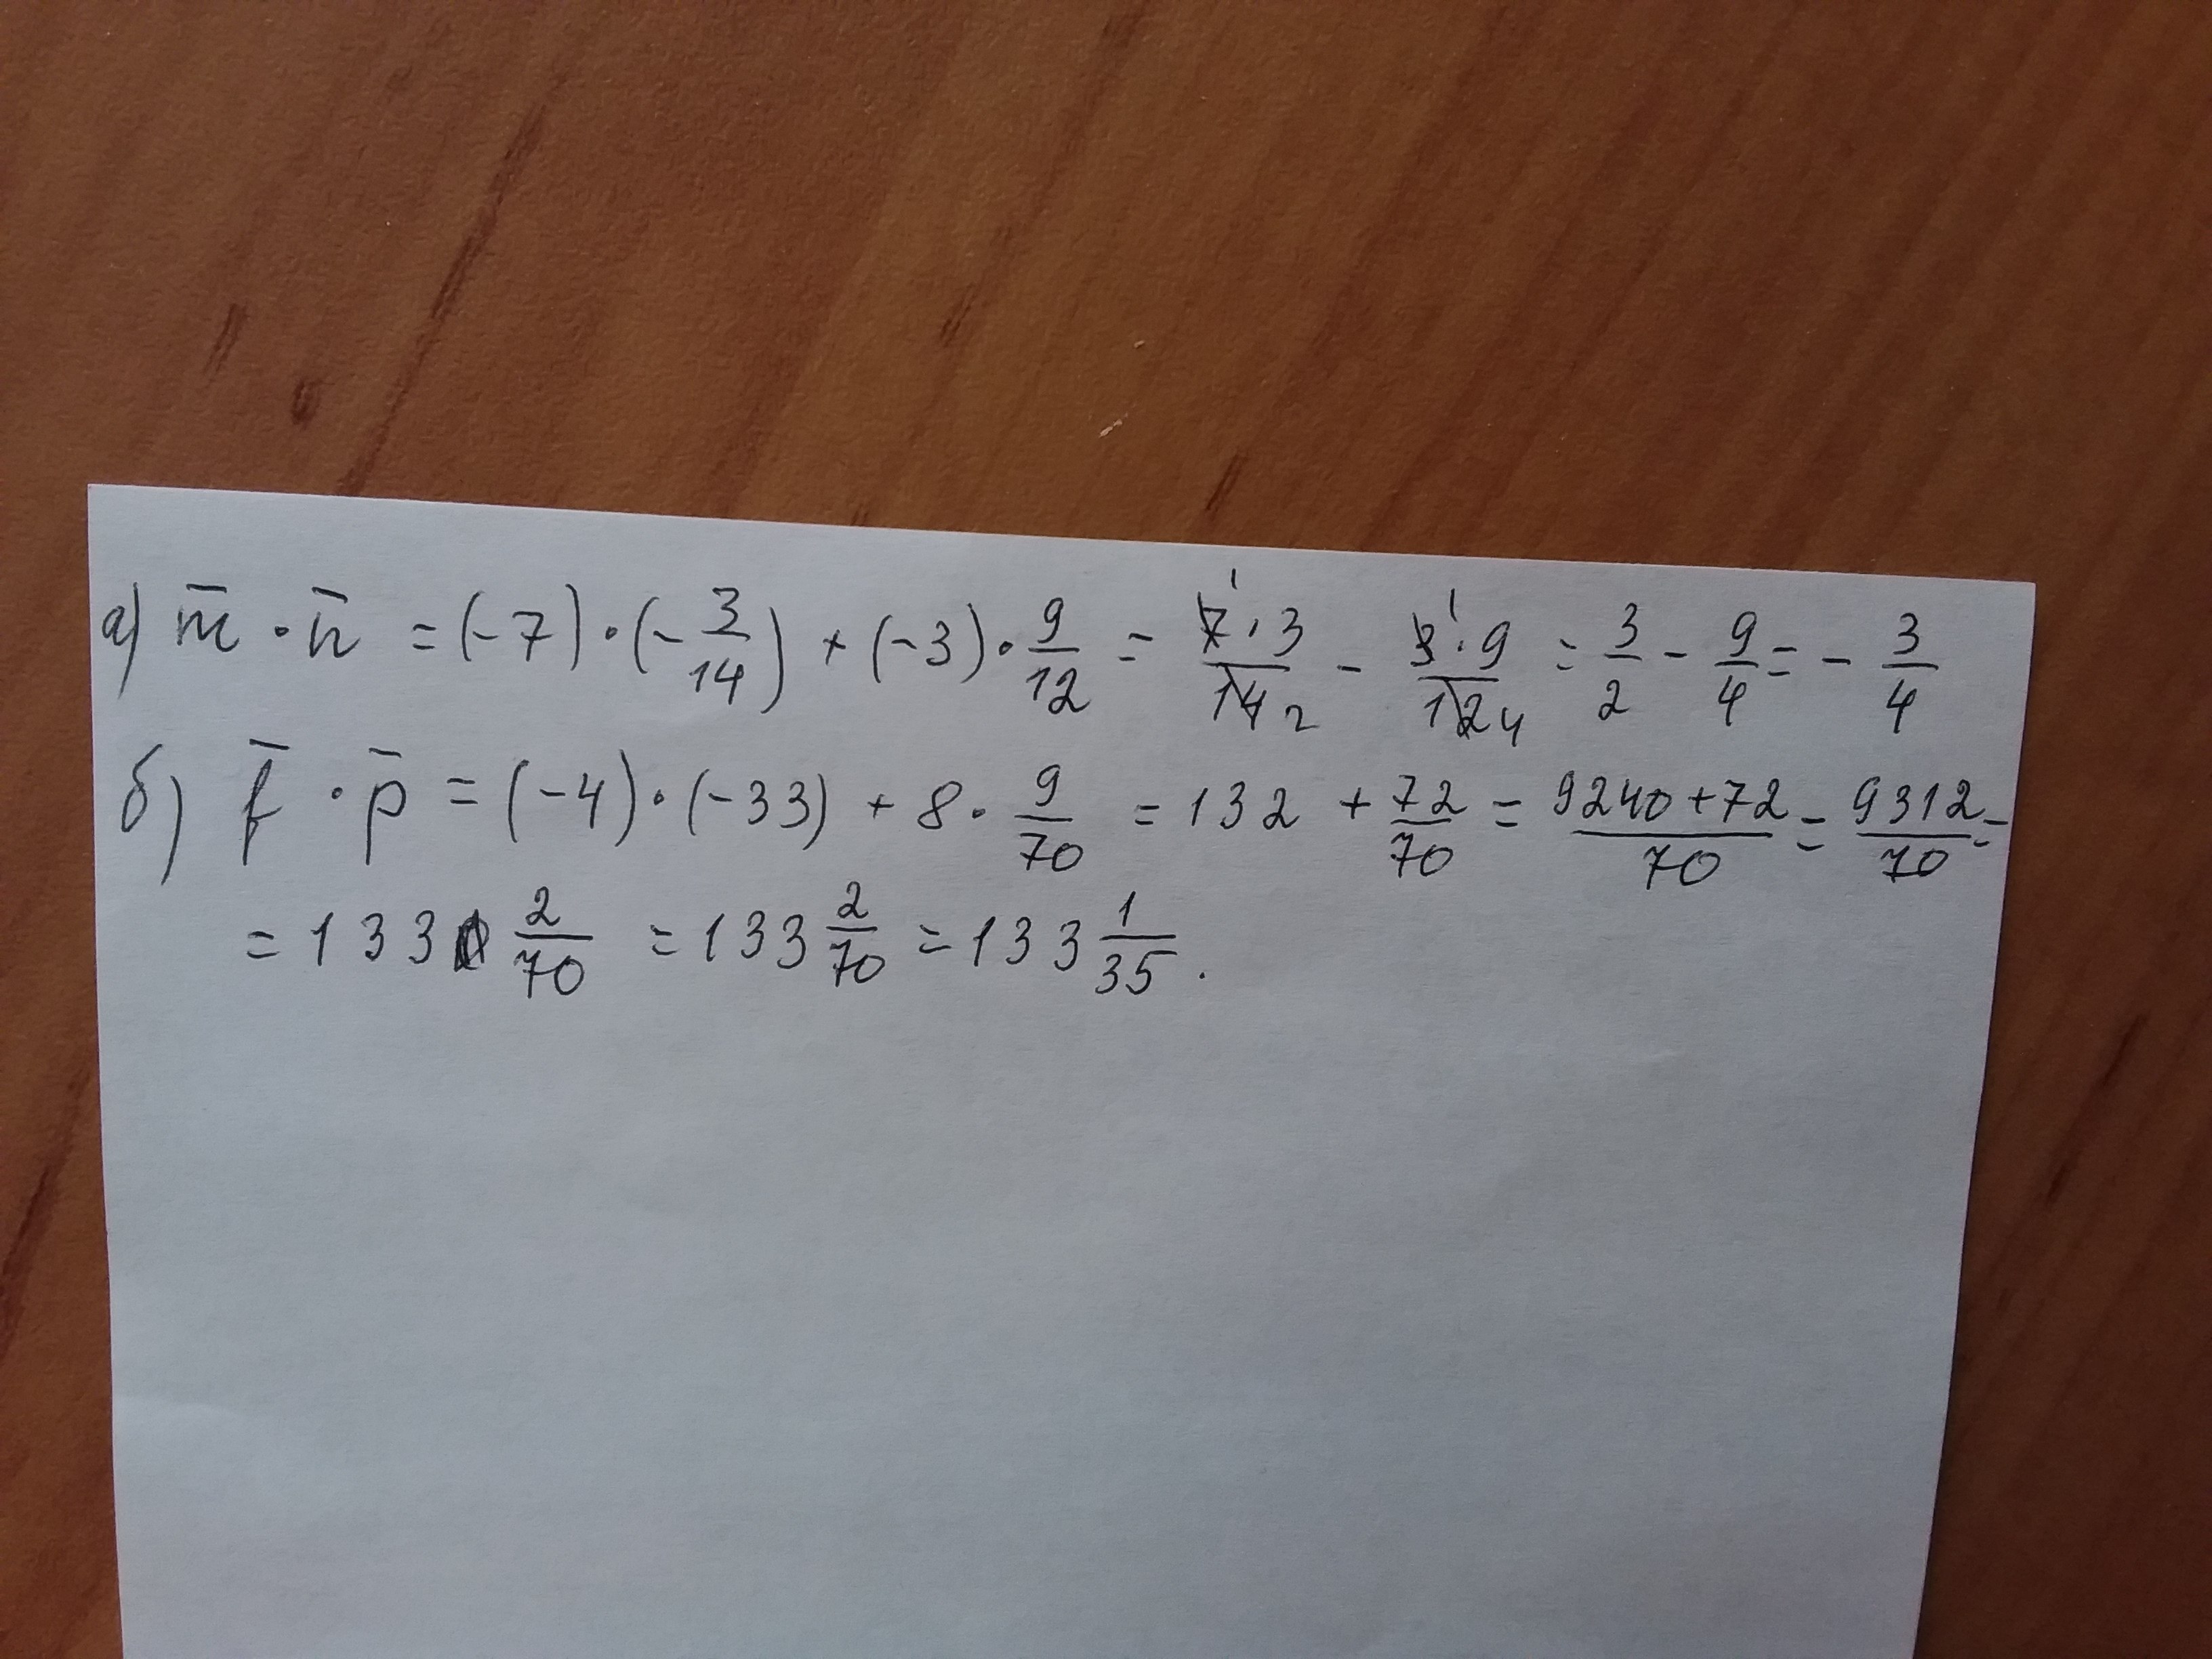 а) m̄ · n̄ = (-7) · (-3/14) + (-3) · 9/12 = 7·3/14 - 3·9/12 = 3/2 - 9/4 = - 3/4
б) f̄ · p̄ = (-4) · (-33) + 8 · 9/70 = 132 + 72/70 = 9240+72/70 = 9312/70 =
= 133 2/70 = 133 2/70 = 133 1/35 .